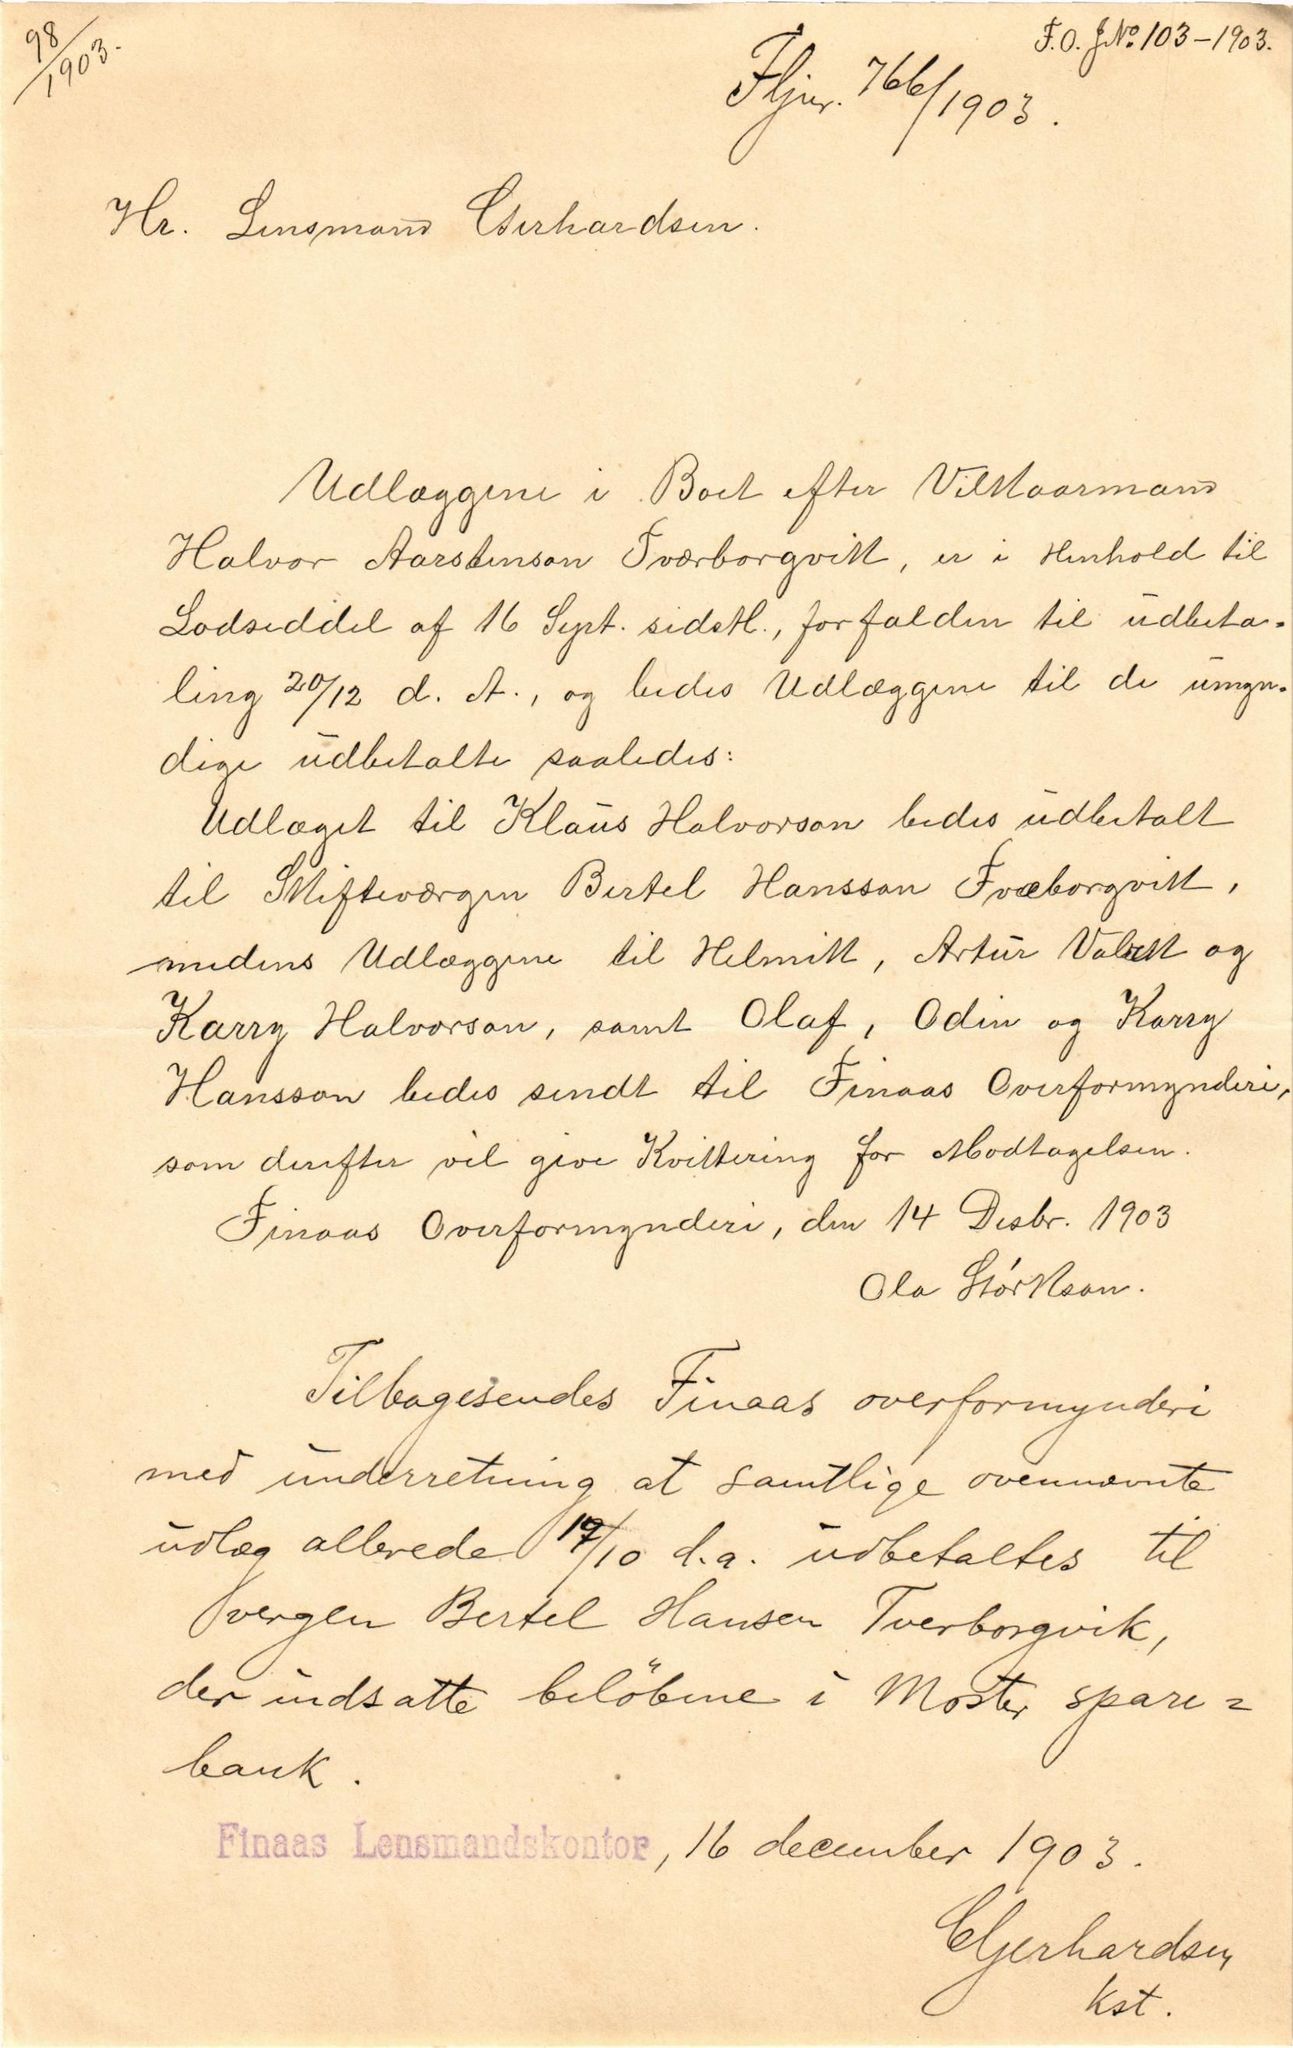 98/1903.
F.O. JNo. 103-1903.
Fljnr. 766/1903.
Hr. Lensmand Gerhardsen.
Udlæggene i Boet efter Vilkaarmand
Halvor Aarstenson Tværborgvik, er i Henhold til
Lodseddel af 16 Sept. sidstl., forfalden til udbeta-
ling 20/12 d. A., og bedes Udlæggene til de umyn-
dige udbetalte saaledes:
Udlæget til Klaus Halvorson bedes udbetalt
til Skifteværgen Bertel Hansson Tvæborgvik,
medens Udlæggene til Helmik, Artur Valek og
Karry Halvorson, samt Olaf, Odin og Karry
Hansson bedes sendt til Finaas Overformynderi,
som derefter vil give Kvittering for Modtagelsen.
Finaas Overformynderi, den 14 Desbr. 1903
Ola Størkson.
Tilbagesendes Finaas overformynderi
med underretning at samtlige ovennævnte
udlæg allerede 17/10 d.a. udbetaltes til
vergen Bertel Hansen Tverborgvik,
der indsatte beløbene i Moster spare=
bank.
Finaas Lensmandskontor, 16 december 1903.
Gerhardsen
kst.